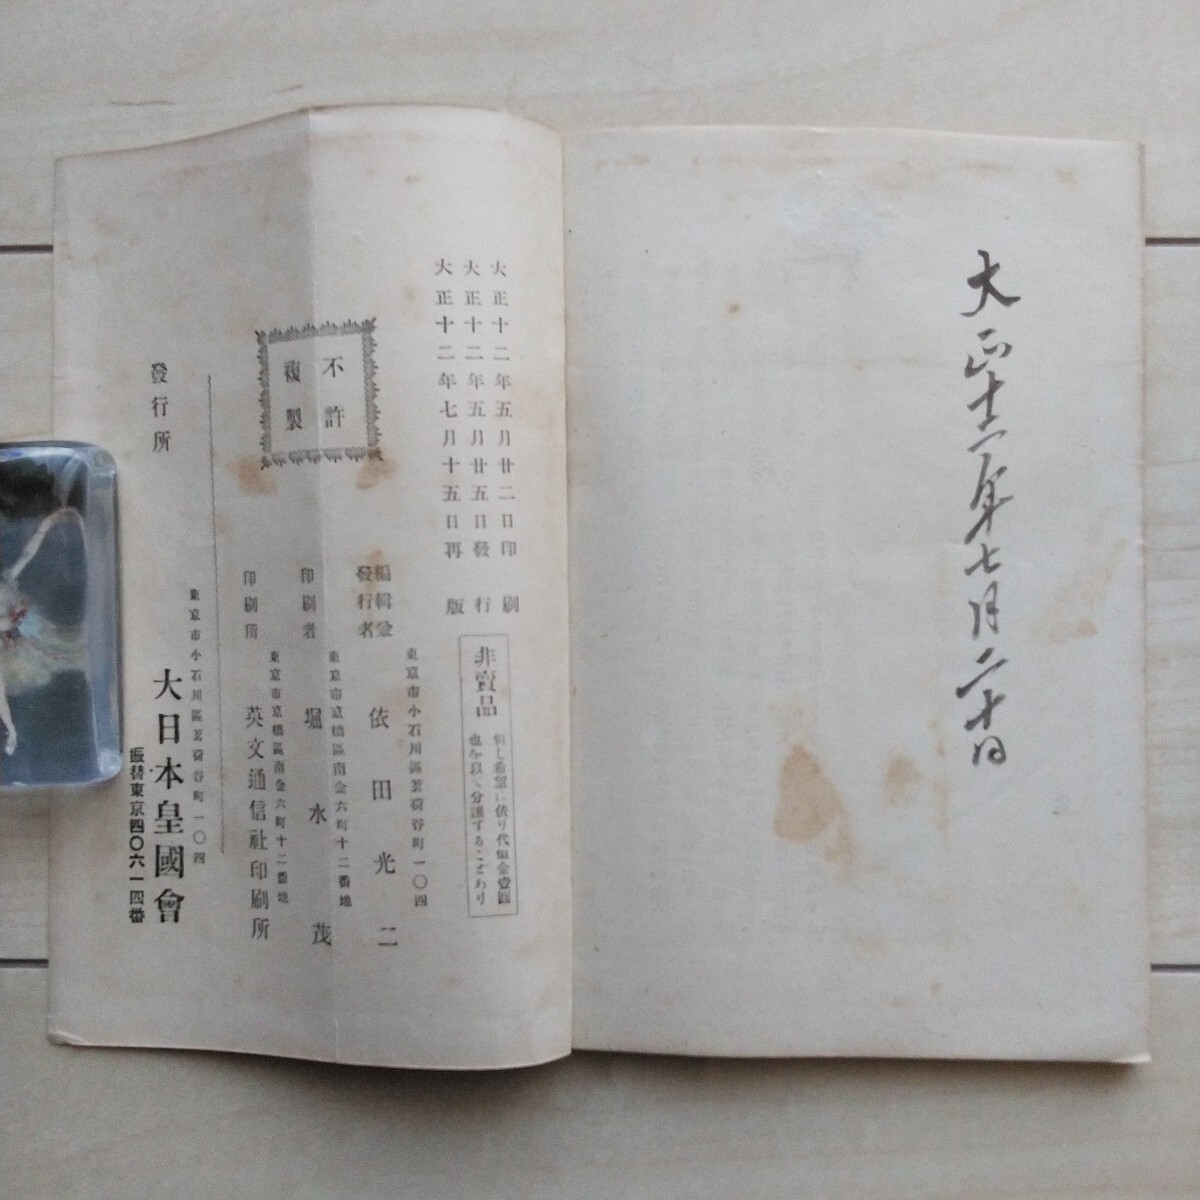 大正十二年七月二十日
大正十二年五月廿二日印刷
大正十二年五月廿五日發行
大正十二年七月十五日再版
非賣品
但し希望に依り代價金壹圓
也を以て分讓することあり
不許
複製
編輯兼
發行者
東京市小石川區茗荷谷町一〇四
依田光二
印刷者
東京市京橋區南金六町十二番地
堀水茂
印刷所
東京市京橋區南金六町十二番地
英文通信社印刷所
發行所
東京市小石川區茗荷谷町一〇四
大日本皇國會
振替東京四〇六一四番